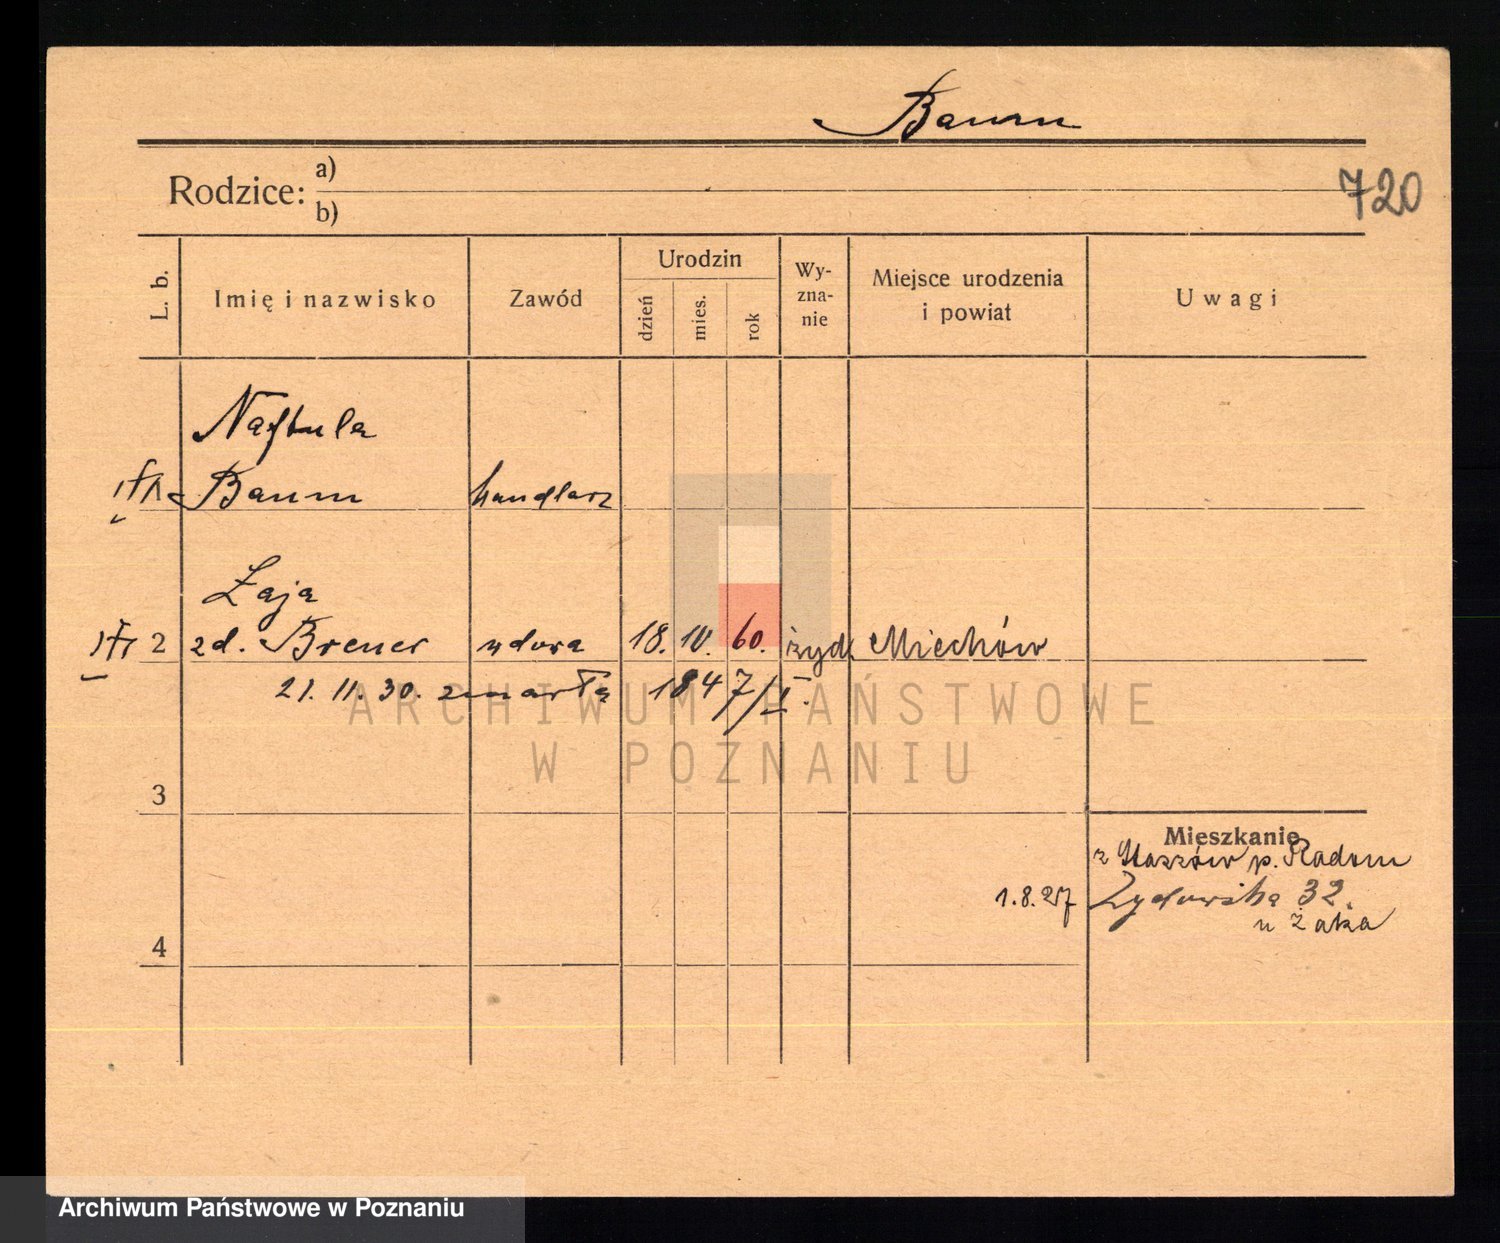 Baum
Rodzice: a)
b)
720
L. b.
Imię i nazwisko
Zawód
Urodzin
dzień
mies.
rok
Wy-
zna-
nie
Miejsce urodzenia
i powiat
Uwagi
Naftula
Baum handlarz
Łaja
2 zd. Brener wdowa 18. IV. 60. żyd. Miechów
21. 11. 30. zmarła 1847/I.
ARCHIWUM PAŃSTWOWE
W POZNANIU
3
Mieszkanie
z Staszów p. Radom
1.8.27 Żydowska 32.
u Żaka
4
Archiwum Państwowe w Poznaniu